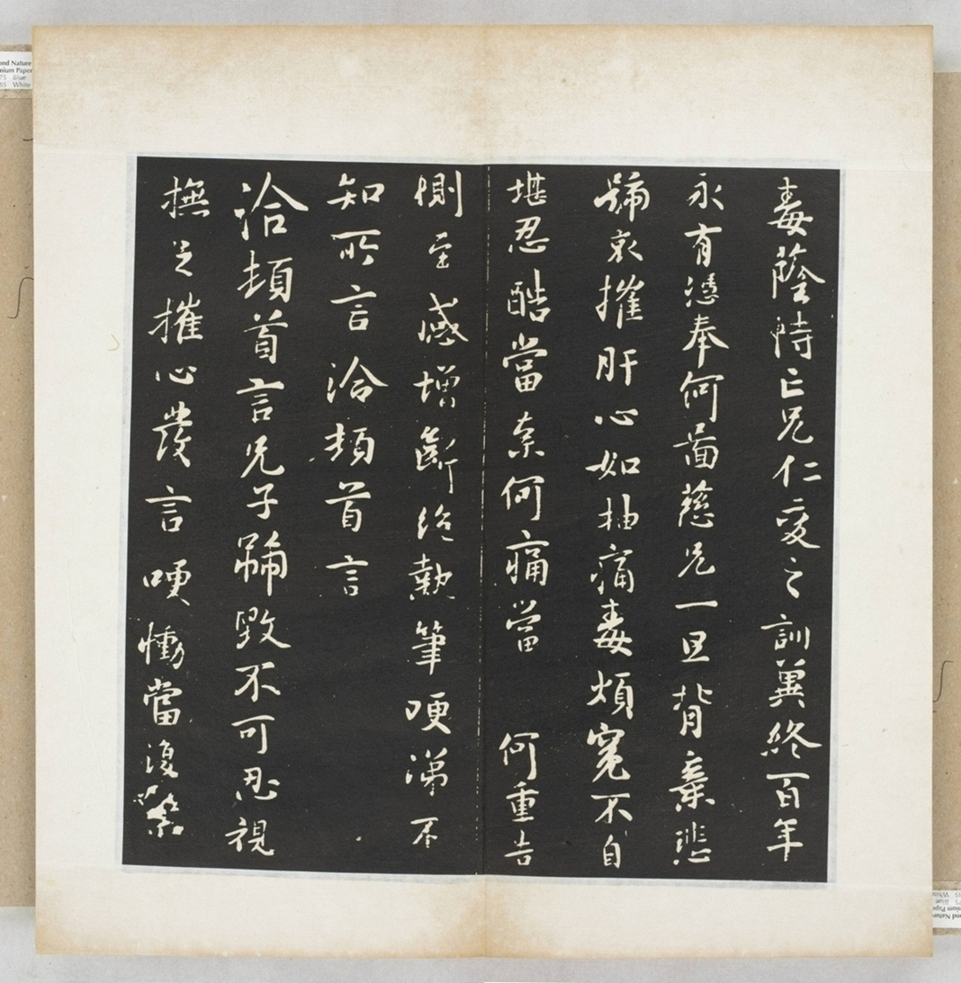 毒蔭恃亡兄仁愛之訓冀終百年
永有憑奉何圖慈兄一旦背棄悲
號哀摧肝心如抽痛毒煩冤不自
堪忍酷當奈何痛當 何重告
惻至感增斷絕執筆哽涕不
知所言洽頓首言
洽頓首言兄子號毀不可忍視
撫之摧心發言哽慟當復
Nature
Paper
Blue
White